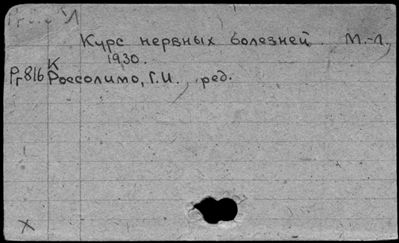 Курс нервных болезней. М.-Л.,
1930.
К
Рг816 Россолимо, Г.И., ред.
X